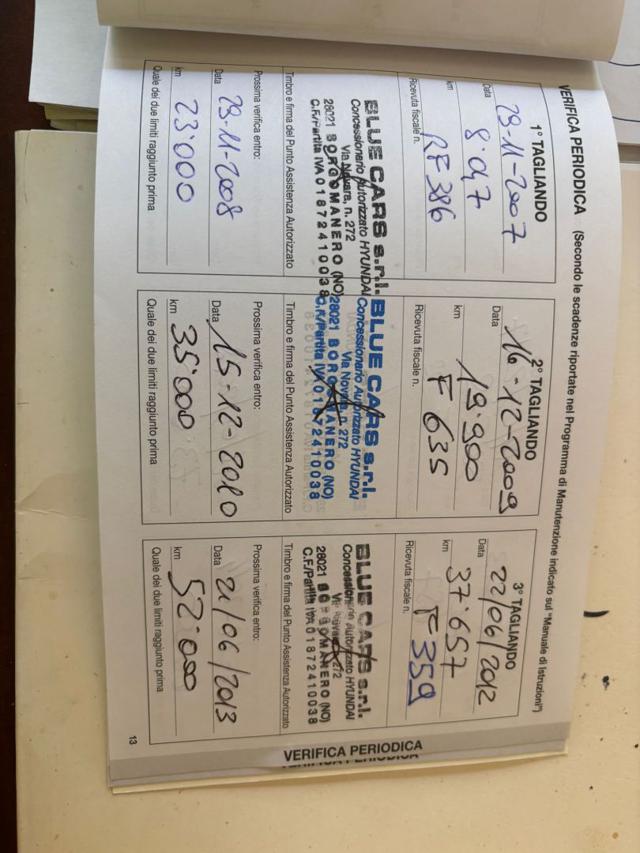 VERIFICA PERIODICA (Secondo le scadenze riportate nel Programma di Manutenzione indicato sul "Manuale di Istruzioni")
1° TAGLIANDO
Data 29-11-2007
km 8.047
Ricevuta fiscale n. RF 386
BLUE CARS s.r.l.
Concessionario Autorizzato HYUNDAI
Via Novara, n. 272
28021 BORGOMANERO (NO)
C.F./Partita IVA 01872410038
Timbro e firma del Punto Assistenza Autorizzato
Prossima verifica entro:
Data 29-11-2008
km 23'000
Quale dei due limiti raggiunto prima
2° TAGLIANDO
Data 16-12-2009
km 19.900
Ricevuta fiscale n. F 635
BLUE CARS s.r.l.
Concessionario Autorizzato HYUNDAI
Via Novara, n. 272
28021 BORGOMANERO (NO)
C.F./Partita IVA 01872410038
Timbro e firma del Punto Assistenza Autorizzato
Prossima verifica entro:
Data 15-12-2010
km 35'000
Quale dei due limiti raggiunto prima
3° TAGLIANDO
Data 22/06/2012
km 37'657
Ricevuta fiscale n. F 359
BLUE CARS s.r.l.
Concessionario Autorizzato HYUNDAI
272
28021 BORGOMANERO (NO)
C.F./Partita IVA 01872410038
Timbro e firma del Punto Assistenza Autorizzato
Prossima verifica entro:
Data 21/06/2013
km 52'000
Quale dei due limiti raggiunto prima
VERIFICA PERIODICA
VERIFICA PERIODICA
13